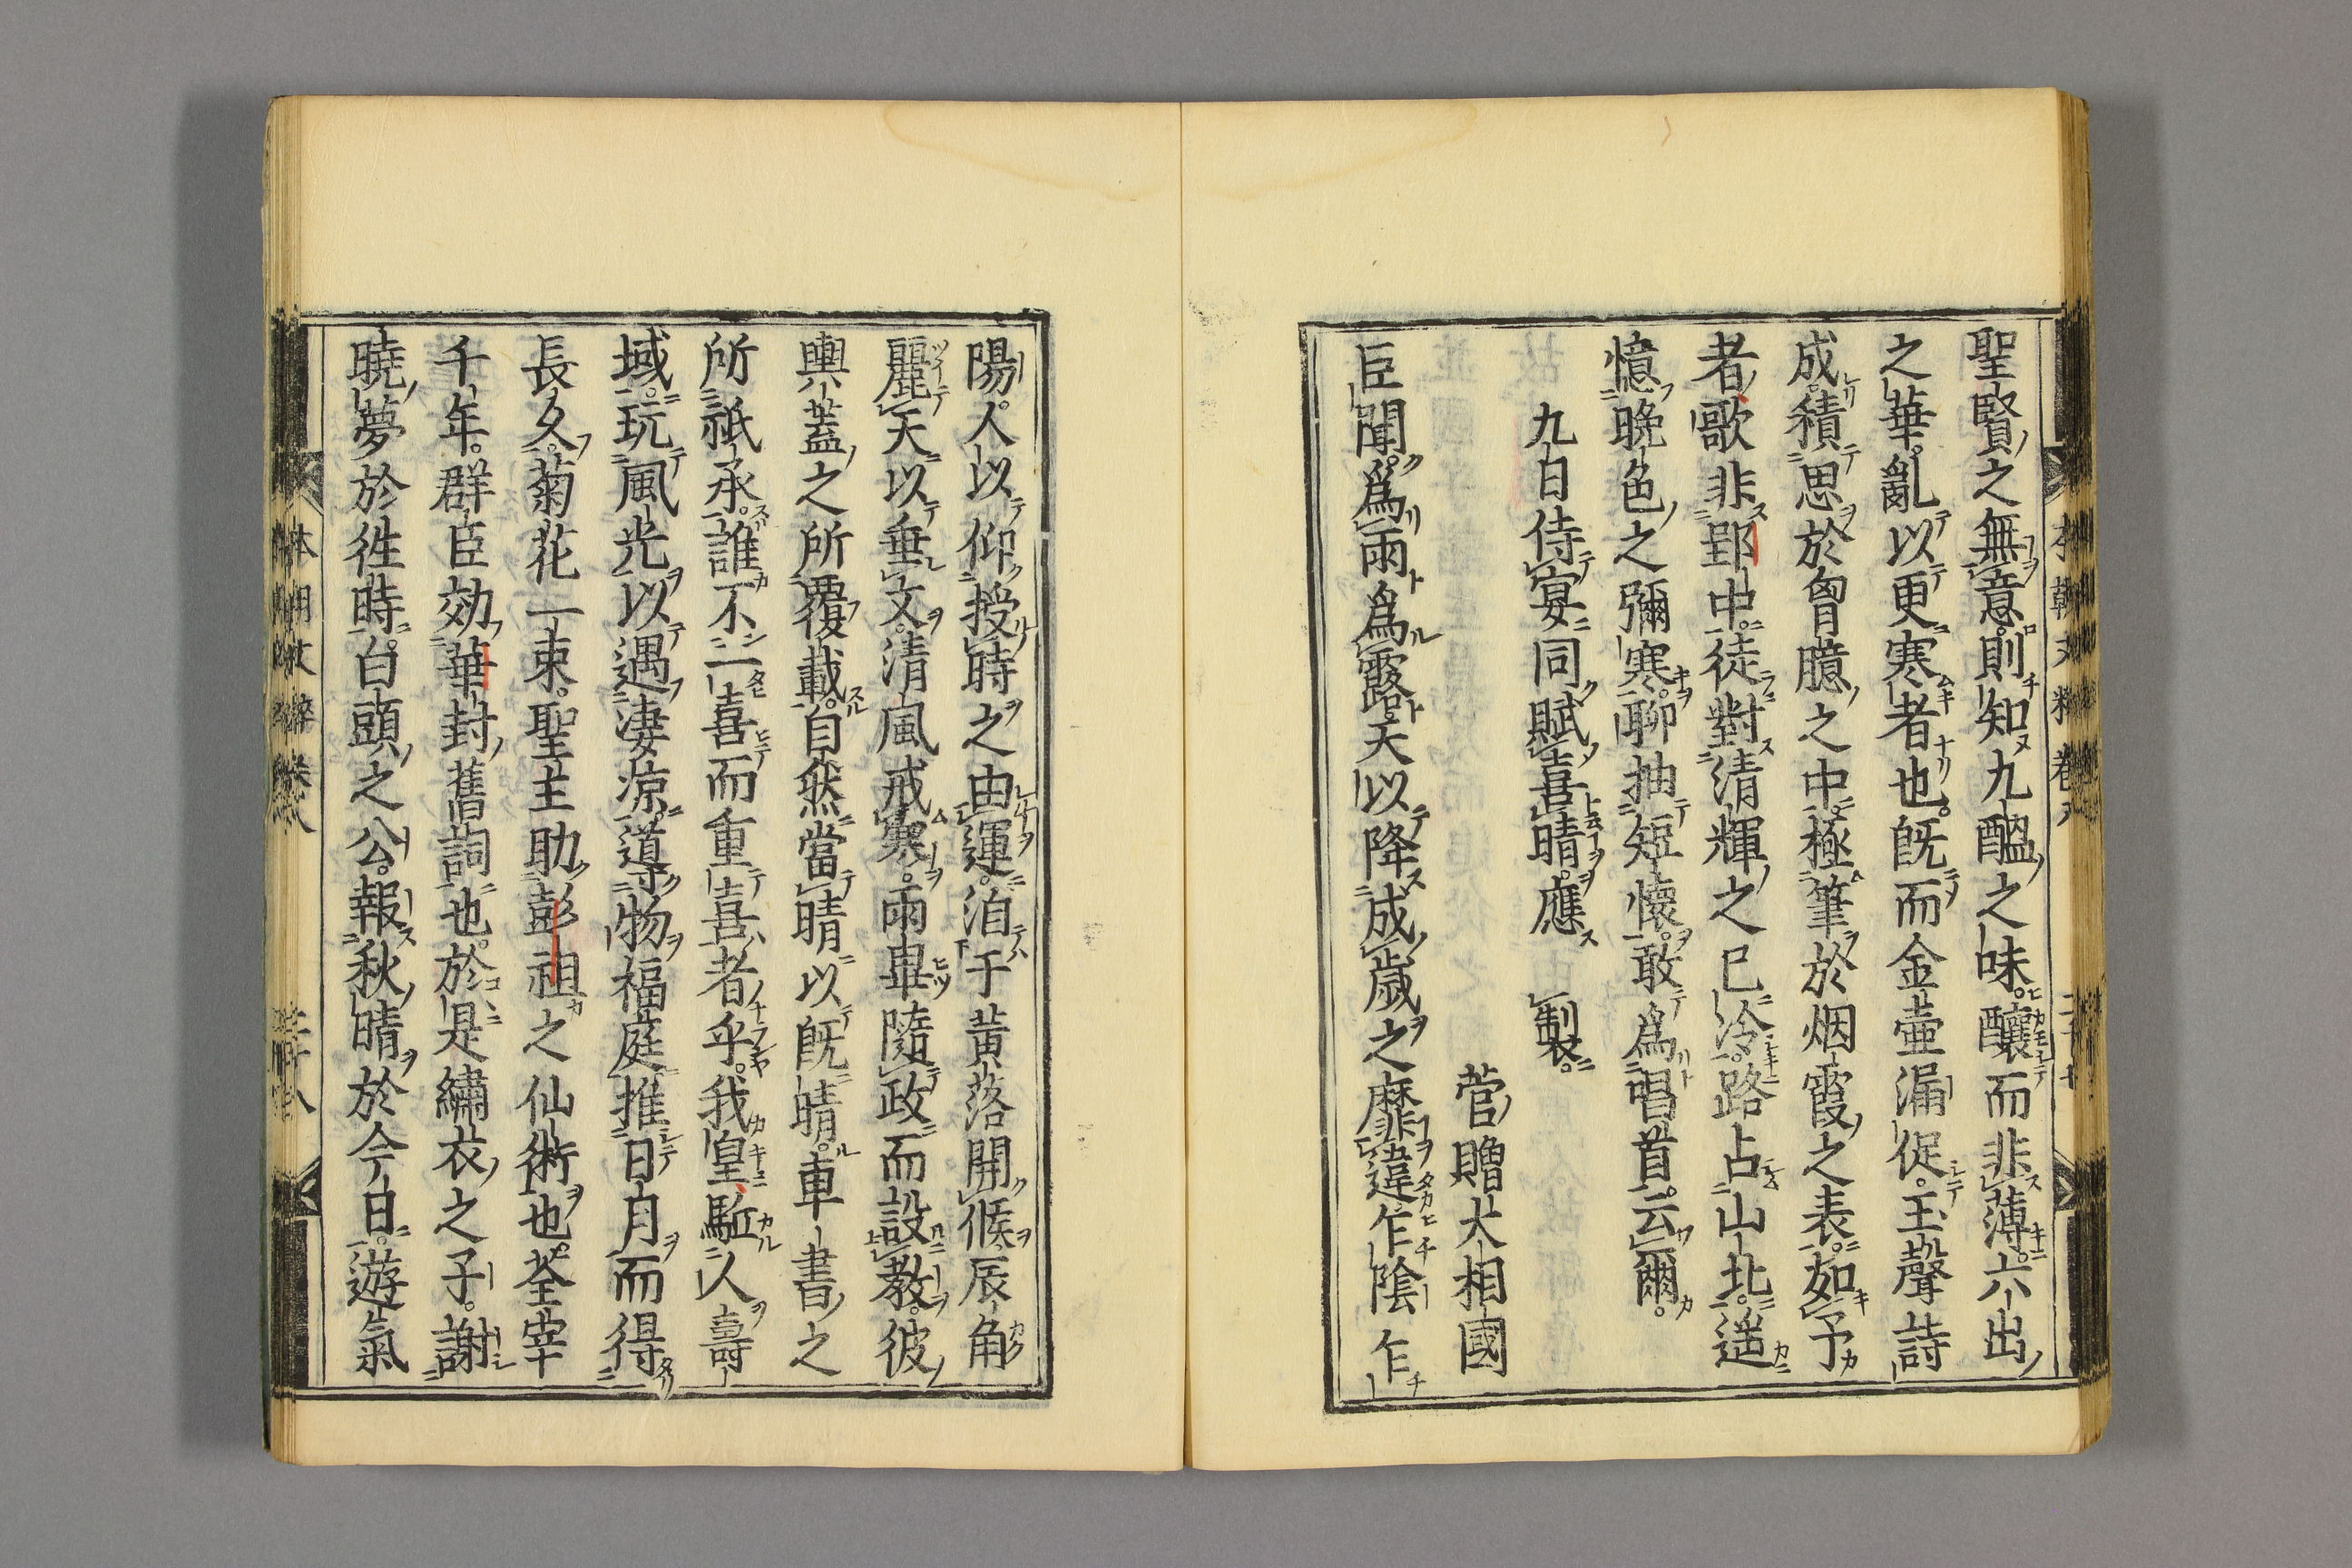 聖賢之無意則知九醞之味釀而非薄六出
之華亂以更寒者也既而金壺漏促玉聲詩
成積思於胷臆之中極筆於烟霞之表如予
者歌非郢中徒對清輝之已冷路占山北遥
憶晩色之彌寒聊抽短懷敢爲唱首云爾
九日侍宴同賦喜晴應製
菅贈大相國
臣聞爲雨爲露天以降成歲之靡違乍陰乍
陽人以仰授時之由運洎于黄落開候辰角
麗天以垂文清風戒寒雨畢隨政而設教彼
輿蓋之所覆載自然當晴以既晴車書之
所祇承誰不一喜而重喜者乎我皇駈人壽
域玩風光以遇凄凉道物福庭推日月而得
長久菊花一束聖主助彭祖之仙術也荃宰
千年群臣効華封舊詞也於是繡衣之子謝
曉夢於徃時白頭之公報秋晴於今日遊氣
本朝文粹卷八
二十七
本朝文粹卷八
二十八